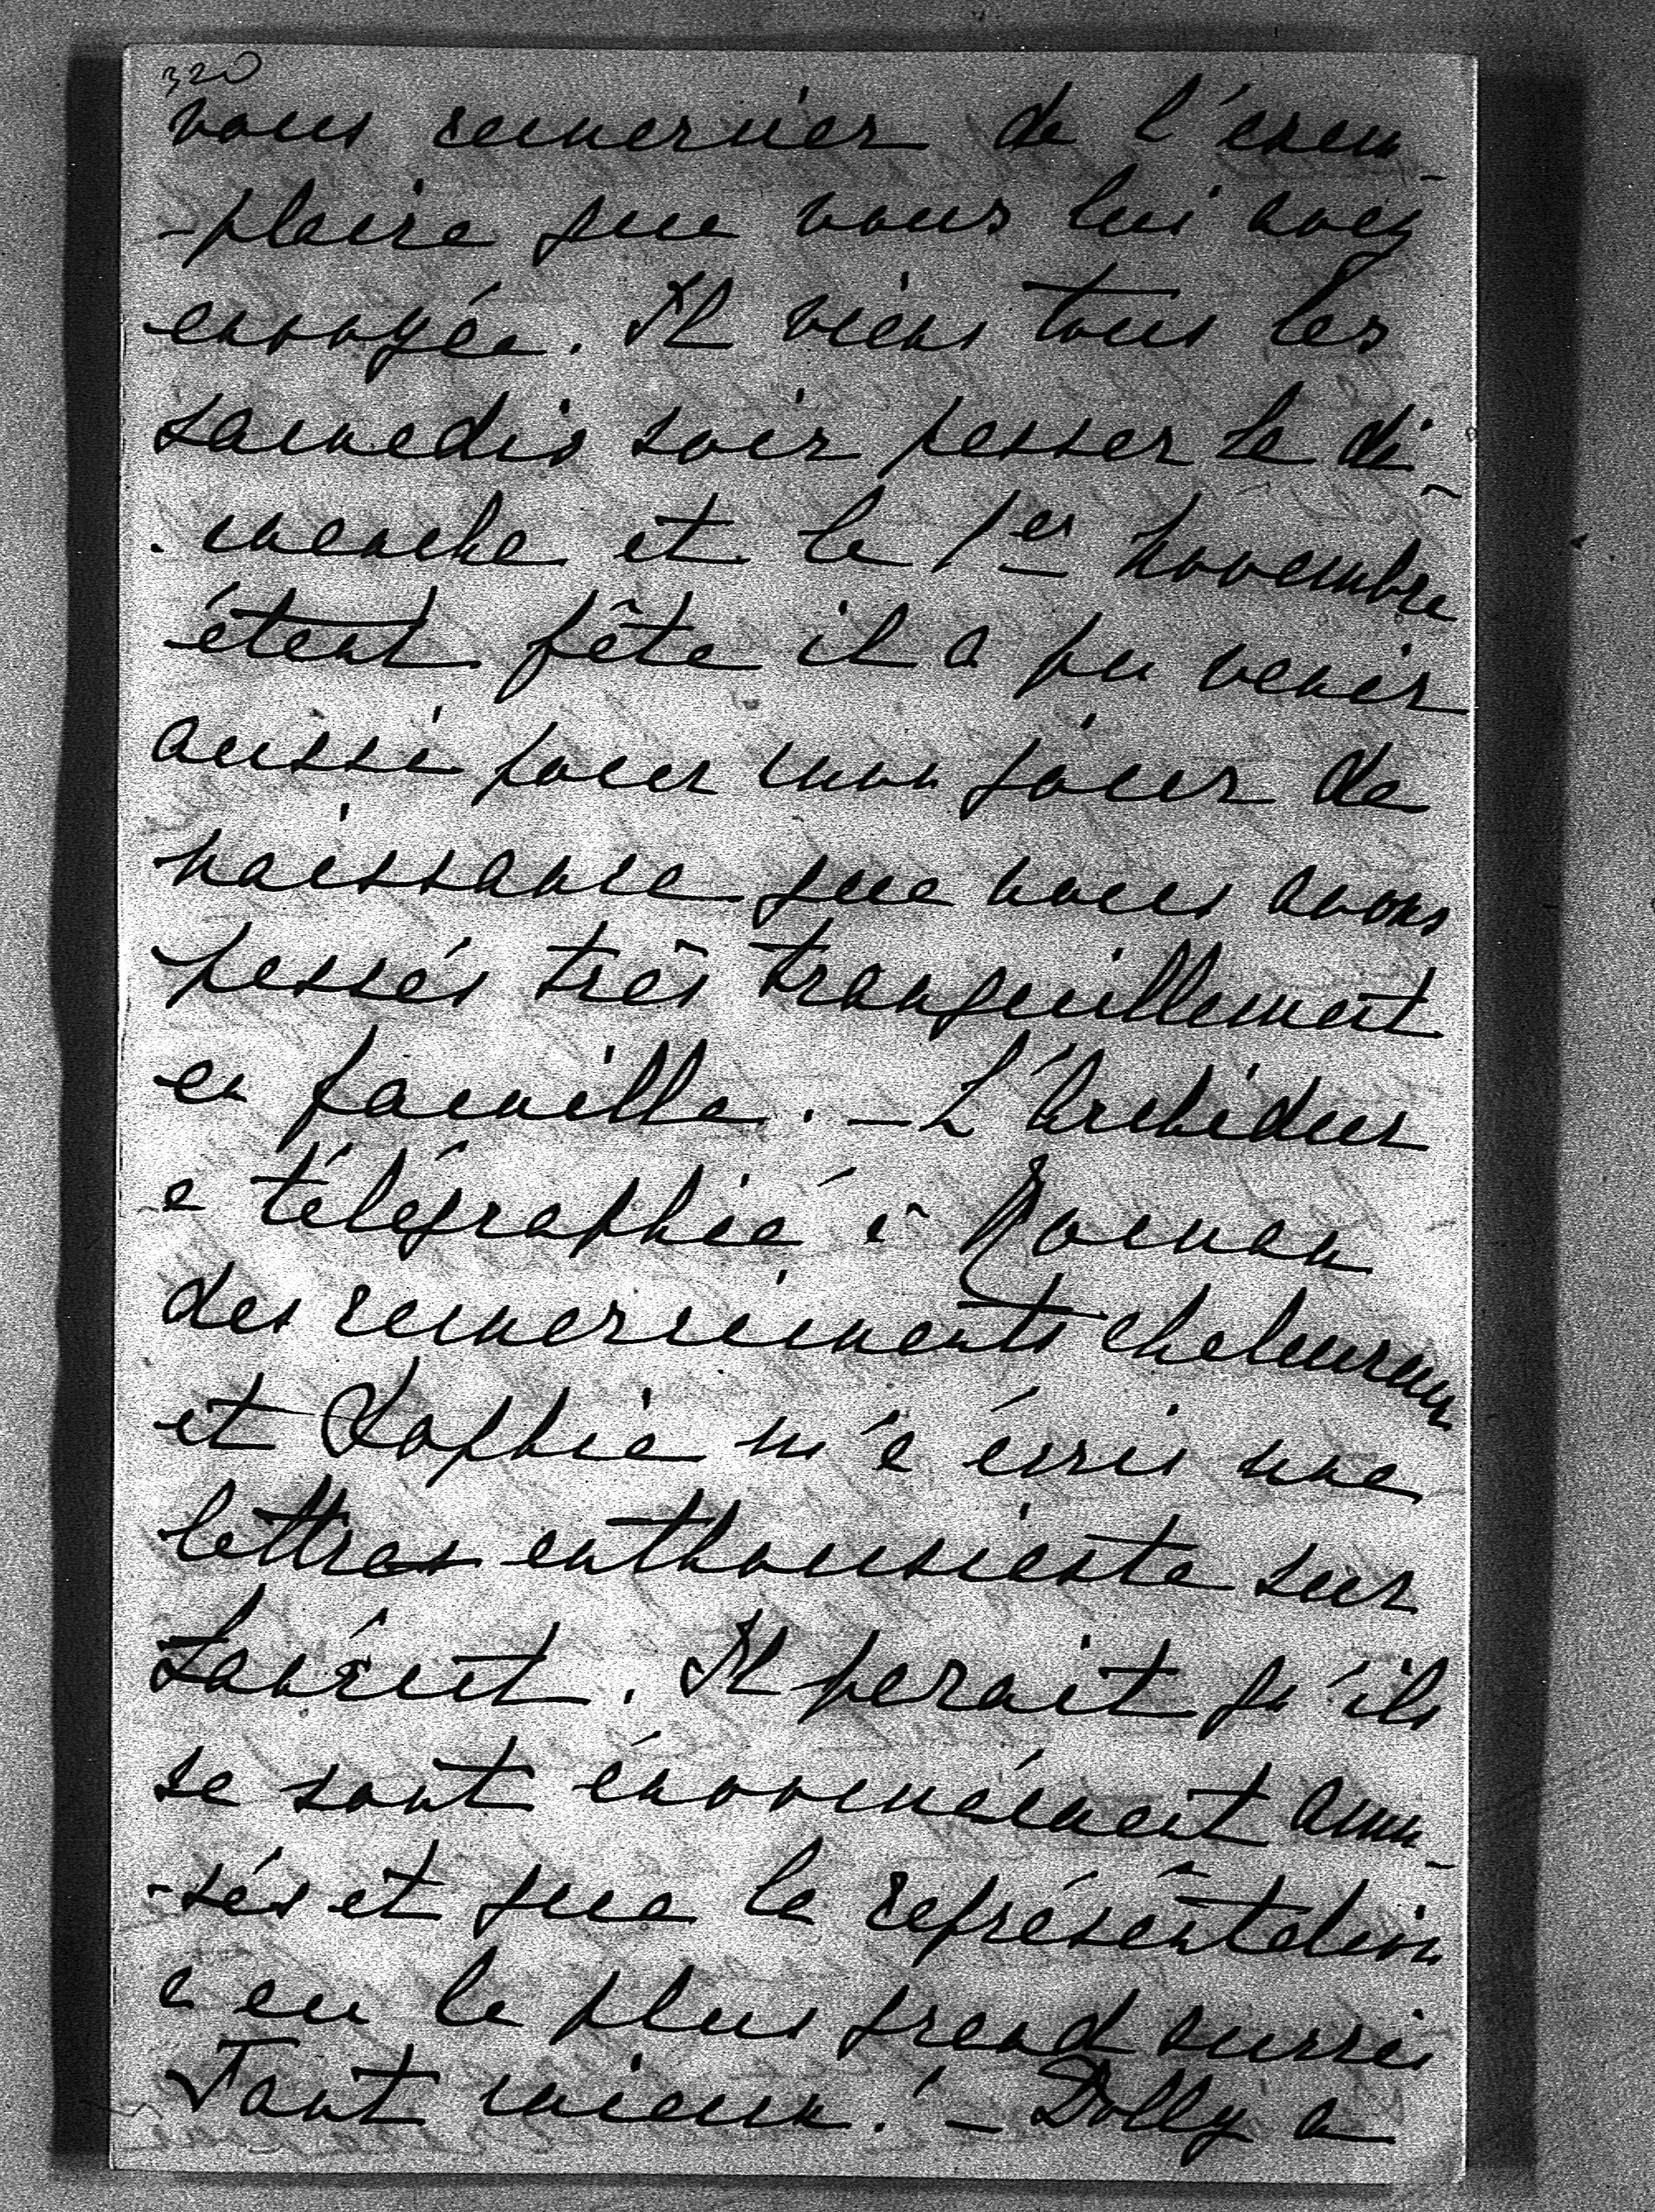 320
vous remercier de l'exem-
-plaire que vous lui avez
envoyée. Il viens tous les
samedis soir passer le di-
-manche et le 1er novembre
étant fête il a pu venir
aussi pour mon jour de
naissance que nous avons
passés très tranquillement
en famille. – L'Archiduc
a télégraphié à
des remerciments chaleureux
et Sophie m'a écris une
lettres enthousiaste sur
Il parait qu'ils
se sont énormément amu-
-sés et que la représentation
a eu le plus grand succès
Tant mieux! – Dolly a